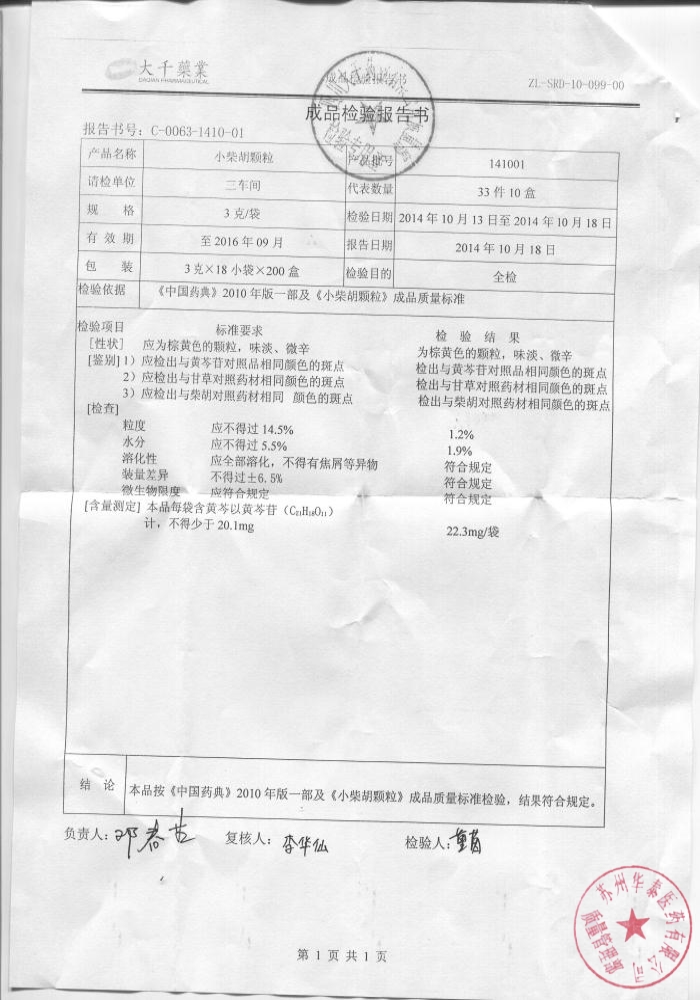 大千藥業
DAQIAN PHARMACEUTICAL
成品检验报告书
ZL-SRD-10-099-00
成品检验报告书
报告书号：C-0063-1410-01
产品名称 小柴胡颗粒 产品批号 141001
请检单位 三车间 代表数量 33 件 10 盒
规 格 3 克/袋 检验日期 2014 年 10 月 13 日至 2014 年 10 月 18 日
有 效 期 至 2016 年 09 月 报告日期 2014 年 10 月 18 日
包 装 3 克×18 小袋×200 盒 检验目的 全检
检验依据 《中国药典》2010 年版一部及《小柴胡颗粒》成品质量标准
检验项目 标准要求 检 验 结 果
[性状] 应为棕黄色的颗粒，味淡、微辛 为棕黄色的颗粒，味淡、微辛
[鉴别] 1）应检出与黄芩苷对照品相同颜色的斑点 检出与黄芩苷对照品相同颜色的斑点
2）应检出与甘草对照药材相同颜色的斑点 检出与甘草对照药材相同颜色的斑点
3）应检出与柴胡对照药材相同 颜色的斑点 检出与柴胡对照药材相同颜色的斑点
[检查]
粒度 应不得过 14.5% 1.2%
水分 应不得过 5.5% 1.9%
溶化性 应全部溶化，不得有焦屑等异物 符合规定
装量差异 不得过±6.5% 符合规定
微生物限度 应符合规定 符合规定
[含量测定] 本品每袋含黄芩以黄芩苷（C₂₁H₁₈O₁₁）
计，不得少于 20.1mg 22.3mg/袋
结 论 本品按《中国药典》2010 年版一部及《小柴胡颗粒》成品质量标准检验，结果符合规定。
负责人： 复核人：李华仙 检验人：
苏州华泰医药有限公司
质量管理部
第 1 页 共 1 页